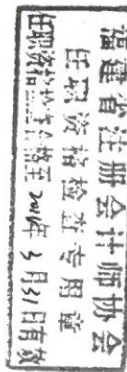 福建省注册会计师协会
任职资格检查专用章
任职资格检查合格至 年3月31日有效